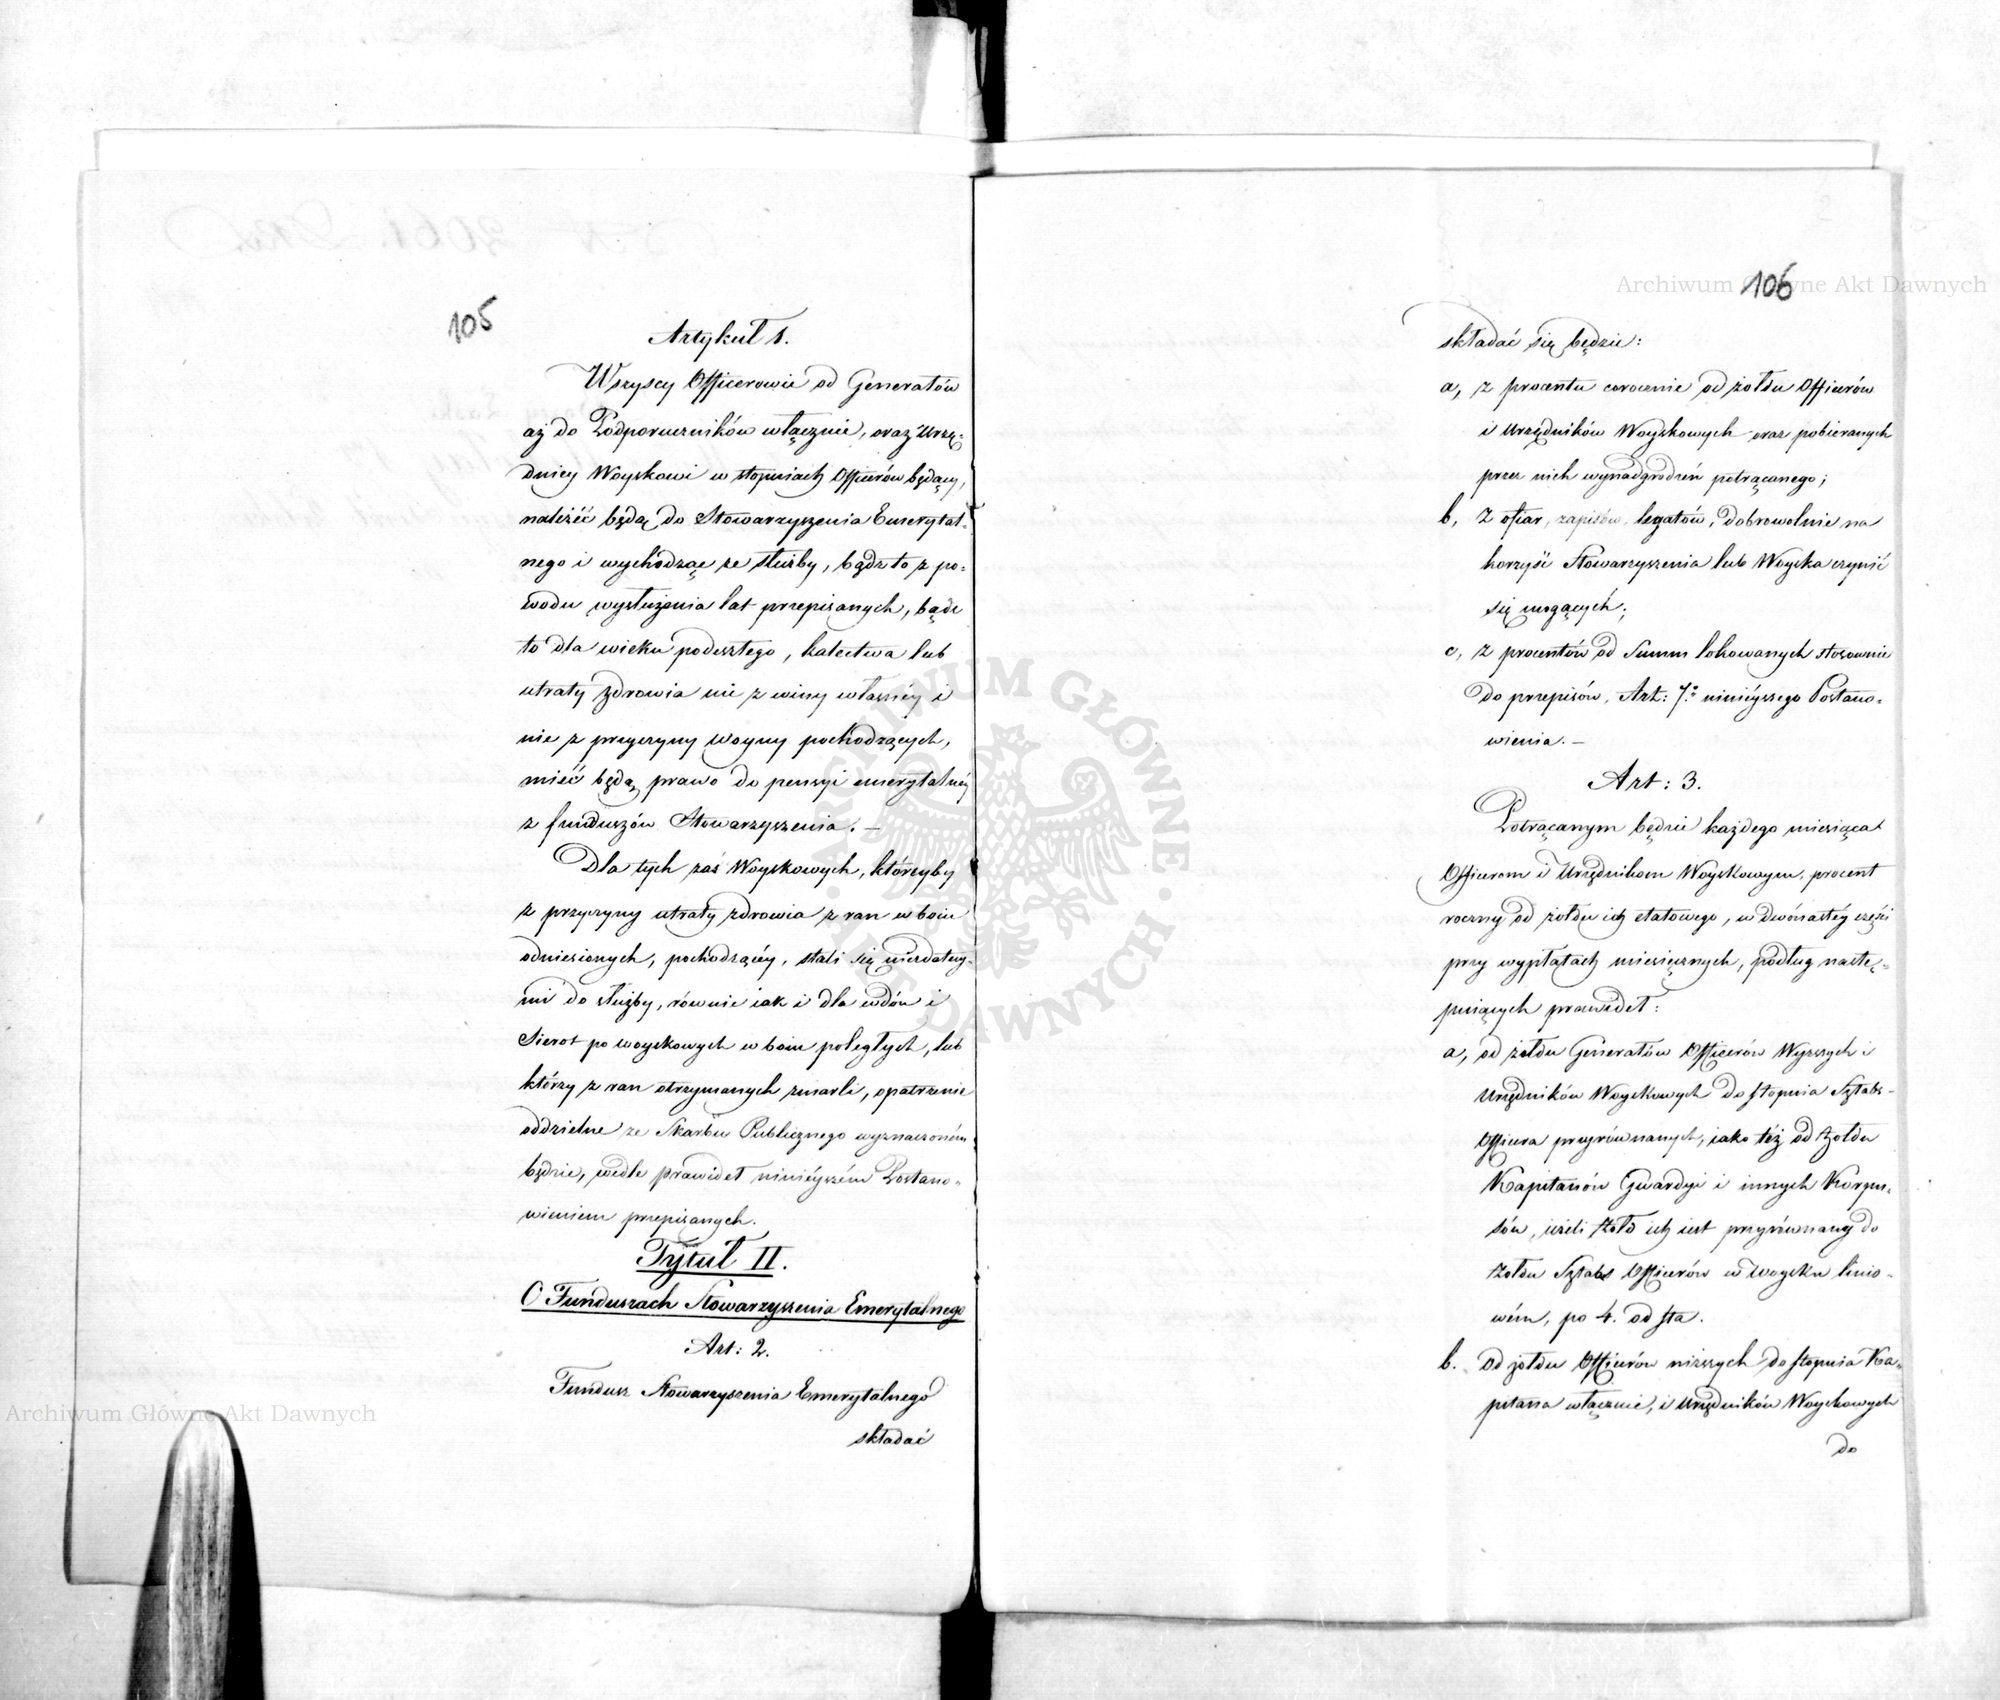 105
Artykuł 1.
Wszyscy Officerowie od Generałów
aż do Podporuczników włącznie, oraz Urzę-
dnicy Woyskowi w stopniach Officerów będący,
należéć będą do Stowarzyszenia Emerytal-
nego i wychodząc ze służby, bądź to z po-
wodu wysłużenia lat przepisanych, bądź
to dla wieku podeszłego, kalectwa lub
utraty zdrowia nie z winy własnéy i
nie z przyczyny woyny pochodzących,
mieć będą prawo do pensyi emerytalnéy
z funduszów Stowarzyszenia. —
Dla tych zaś Woyskowych, którzyby
z przyczyny utraty zdrowia z ran w boiu
odniesionych, pochodzącéy, stali się niezdatny-
mi do służby, równie iak i dla wdów i
Sierot po woyskowych w boiu poległych, lub
którzy z ran otrzymanych zmarli, opatrzenie
oddzielne ze Skarbu Publicznego wyznaczoném
będzie, wedle prawideł ninieyszém Postano-
wieniem przepisanych.
Tytuł II.
O Funduszach Stowarzyszenia Emerytalnego
Art: 2.
Fundusz Stowarzyszenia Emerytalnego
składać
106
składać się będzie:
a, z procentu corocznie od żołdu Officerów
i Urzędników Woyskowych oraz pobieranych
przez nich wynadgrodzeń potrącanego;
b, Z ofiar, zapisów, legatów, dobrowolnie na
korzyść Stowarzyszenia lub Woyska czynić
się mogących;
c, z procentów od Summ lokowanych stosownie
do przepisów, Art: 7º ninieyszego Postano-
wienia. —
Art: 3.
Potrącanym będzie każdego miesiąca
Officerom i Urzędnikom Woyskowym, procent
roczny od żołdu ich etatowego, w dwónastéy części
przy wypłatach miesięcznych, podług nastę-
puiących prawideł:
a, od żołdu Generałów Officerów Wyższych i
Urzędników Woyskowych do stopnia Sztabs-
Officera przyrównanych, iako też od żołdu
Kapitanów Gwardyi i innych Korpu-
sów, ieżeli żołd ich iest przyrównany do
żołdu Sztabs Officerów w woysku linio-
wém, po 4. od sta.
b. Od żołdu Officerów niższych do stopnia Ka-
pitana włącznie, i Urzędników Woyskowych
do
Archiwum Główne Akt Dawnych
Archiwum Główne Akt Dawnych
ARCHIWUM GŁÓWNE AKT DAWNYCH